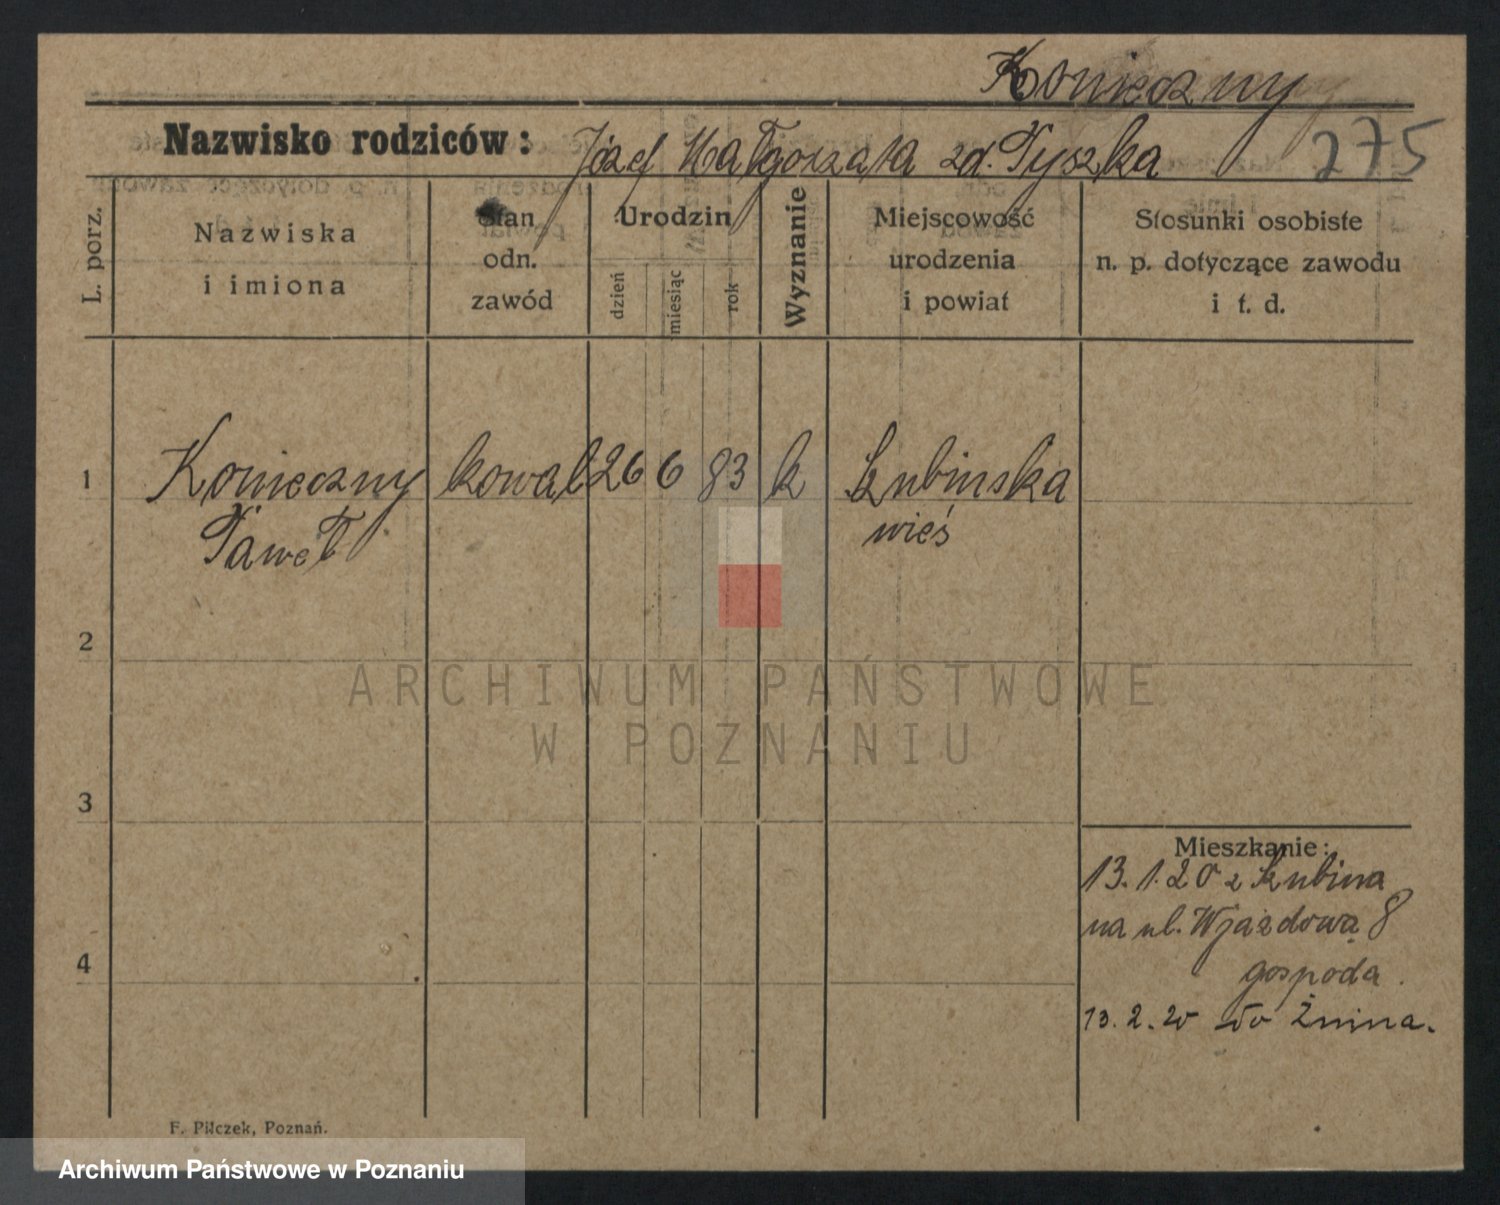 Konieczny
Nazwisko rodziców: Józef Małgorzata zd. Tyszka 275
L. porz.
Nazwiska
i imiona
Stan
odn.
zawód
Urodzin
dzień
miesiąc
rok
Wyznanie
Miejscowość
urodzenia
i powiat
Stosunki osobiste
n. p. dotyczące zawodu
i t. d.
1 Konieczny kowal 26 6 83 k Szubinska
Paweł wieś
2
3
4
Mieszkanie:
13.1.20 z Szubina
na ul. Wjazdową 8
gospoda.
13.2.20 do Żnina.
F. Pilczek, Poznań.
ARCHIWUM PAŃSTWOWE
W POZNANIU
Archiwum Państwowe w Poznaniu